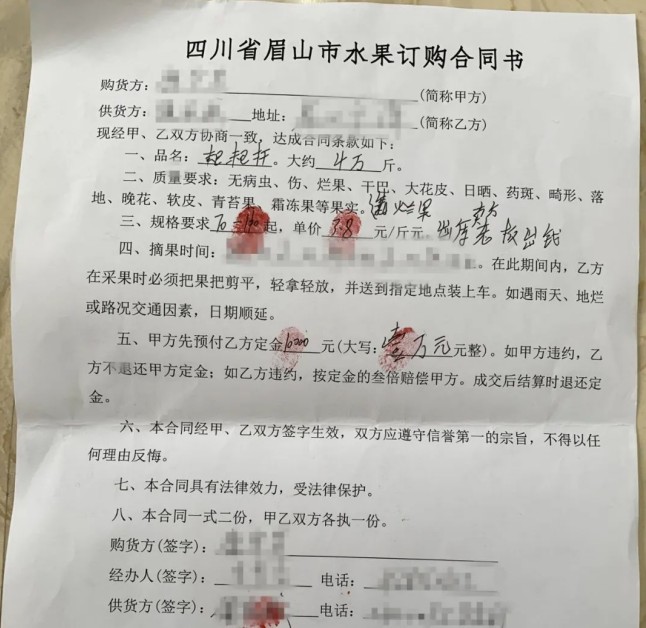 四川省眉山市水果订购合同书
购货方：(简称甲方)
供货方：地址：(简称乙方)
现经甲、乙双方协商一致，达成合同条款如下：
一、品名：粑粑柑。大约4万斤。
二、质量要求：无病虫、伤、烂果、干巴、大花皮、日晒、药斑、畸形、落
地、晚花、软皮、青苔果、霜冻果等果实。烂果
三、规格要求起，单价3.8元/斤元。
四、摘果时间：。在此期间内，乙方
在采果时必须把果把剪平，轻拿轻放，并送到指定地点装上车。如遇雨天、地烂
或路况交通因素，日期顺延。
五、甲方先预付乙方定金10000元(大写：壹万元元整)。如甲方违约，乙
方不退还甲方定金；如乙方违约，按定金的叁倍赔偿甲方。成交后结算时退还定
金。
六、本合同经甲、乙双方签字生效，双方应遵守信誉第一的宗旨，不得以任
何理由反悔。
七、本合同具有法律效力，受法律保护。
八、本合同一式二份，甲乙双方各执一份。
购货方(签字)：
经办人(签字)：电话：
供货方(签字)：电话：